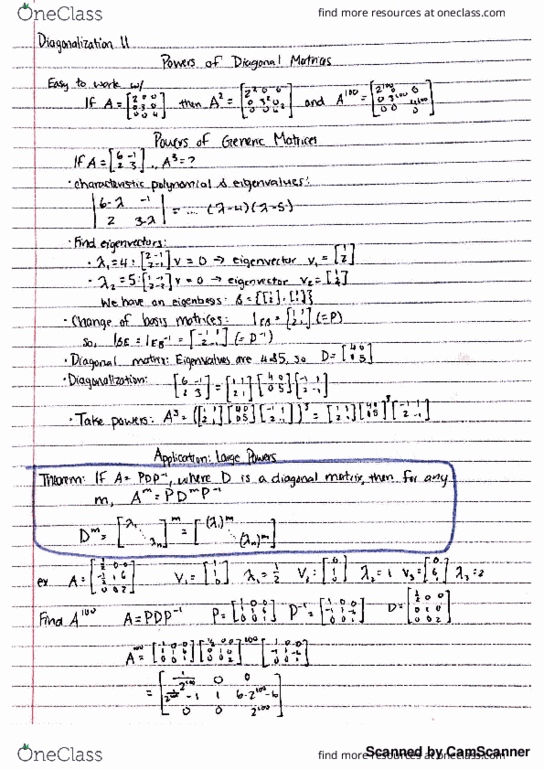 OneClass
find more resources at oneclass.com
Diagonalization II
Powers of Diagonal Matrices
Easy to work w/
If A = [2 0 0; 0 3 0; 0 0 4] then A² = [2² 0 0; 0 3² 0; 0 0 4²] and A¹⁰⁰ = [2¹⁰⁰ 0 0; 0 3¹⁰⁰ 0; 0 0 4¹⁰⁰]
Powers of Generic Matrices
If A = [6 -1; 2 3], A³ = ?
· characteristic polynomial & eigenvalues:
|6-λ -1; 2 3-λ| = ... (λ-4)(λ-5)
· Find eigenvectors:
· λ₁=4: [2 -1; 2 -1] v = 0 → eigenvector v₁ = [1; 2]
· λ₂=5: [1 -1; 2 -2] v = 0 → eigenvector v₂ = [1; 1]
We have an eigenbasis: B = {[1; 2], [1; 1]}
· Change of basis matrices: I_EB = [1 1; 2 1] (=P)
so, I_BE = I_EB⁻¹ = [-1 1; 2 -1] (= D⁻¹)
· Diagonal matrix: Eigenvalues are 4 & 5, so D = [4 0; 0 5]
· Diagonalization: [6 -1; 2 3] = [1 1; 2 1] [4 0; 0 5] [-1 1; 2 -1]
· Take powers: A³ = ([1 1; 2 1] [4 0; 0 5] [-1 1; 2 -1])³ = [1 1; 2 1] [4 0; 0 5]³ [-1 1; 2 -1]
Application: Large Powers
Theorem: If A = PDP⁻¹, where D is a diagonal matrix, then for any
m, A^m = PD^mP⁻¹
D^m = [λ₁ ⋱ λₙ]^m = [(λ₁)^m ⋱ (λₙ)^m]
ex A = [½ 0 0; -½ 1 6; 0 0 2] v₁ = [1; 1; 0] λ₁ = ½ v₂ = [0; 1; 0] λ₂ = 1 v₃ = [0; 6; 1] λ₃ = 2
Find A¹⁰⁰ A = PDP⁻¹ P = [1 0 0; 1 1 6; 0 0 1] P⁻¹ = [1 0 0; -1 1 -6; 0 0 1] D = [½ 0 0; 0 1 0; 0 0 2]
A¹⁰⁰ = [1 0 0; 1 1 6; 0 0 1] [½ 0 0; 0 1 0; 0 0 2]¹⁰⁰ [1 0 0; -1 1 -6; 0 0 1]
= [1/2¹⁰⁰ 0 0; 1/2¹⁰⁰ -1 1 6·2¹⁰⁰-6; 0 0 2¹⁰⁰]
OneClass
find more resources at oneclass.com
Scanned by CamScanner